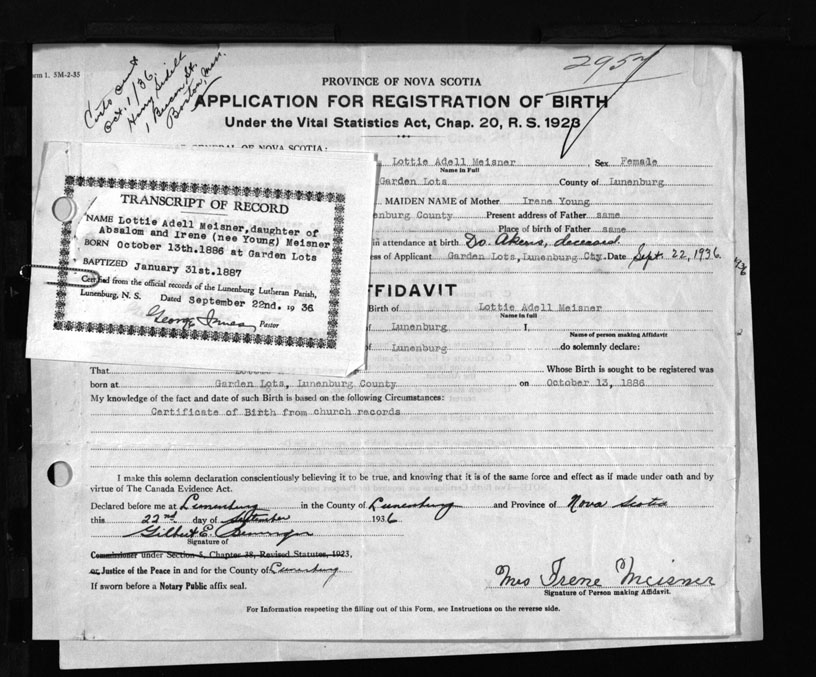 orm 1. 5M-2-35
Oct. 1/36
Boston, Mass.
2957
PROVINCE OF NOVA SCOTIA
APPLICATION FOR REGISTRATION OF BIRTH
Under the Vital Statistics Act, Chap. 20, R. S. 1923
GENERAL OF NOVA SCOTIA:
Lottie Adell Meisner, Sex Female
Name in Full
Garden Lots County of Lunenburg
MAIDEN NAME of Mother Irene Young
enburg County Present address of Father same
Place of birth of Father same
in attendance at birth Do. Akens, deceased.
ss of Applicant Garden Lots, Lunenburg Cty. Date Sept. 22, 1936.
TRANSCRIPT OF RECORD
NAME Lottie Adell Meisner, daughter of
Absalom and Irene (nee Young) Meisner
BORN October 13th. 1886 at Garden Lots
BAPTIZED January 31st. 1887
Certified from the official records of the Lunenburg Lutheran Parish,
Lunenburg, N. S. Dated September 22nd. 1936
George Innes, Pastor
FFIDAVIT
Birth of Lottie Adell Meisner
Name in full
of Lunenburg I,
Name of person making Affidavit
of Lunenburg do solemnly declare:
That Whose Birth is sought to be registered was
born at Garden Lots, Lunenburg County on October 13, 1886
My knowledge of the fact and date of such Birth is based on the following Circumstances:
Certificate of Birth from church records
I make this solemn declaration conscientiously believing it to be true, and knowing that it is of the same force and effect as if made under oath and by
virtue of The Canada Evidence Act.
Declared before me at Lunenburg in the County of Lunenburg and Province of Nova Scotia
this 22nd day of September 1936
Gilbert E.
Signature of
Commissioner under Section 5, Chapter 38, Revised Statutes, 1923,
or Justice of the Peace in and for the County of Lunenburg
If sworn before a Notary Public affix seal.
Mrs Irene Meisner
Signature of Person making Affidavit.
For Information respecting the filling out of this Form, see Instructions on the reverse side.